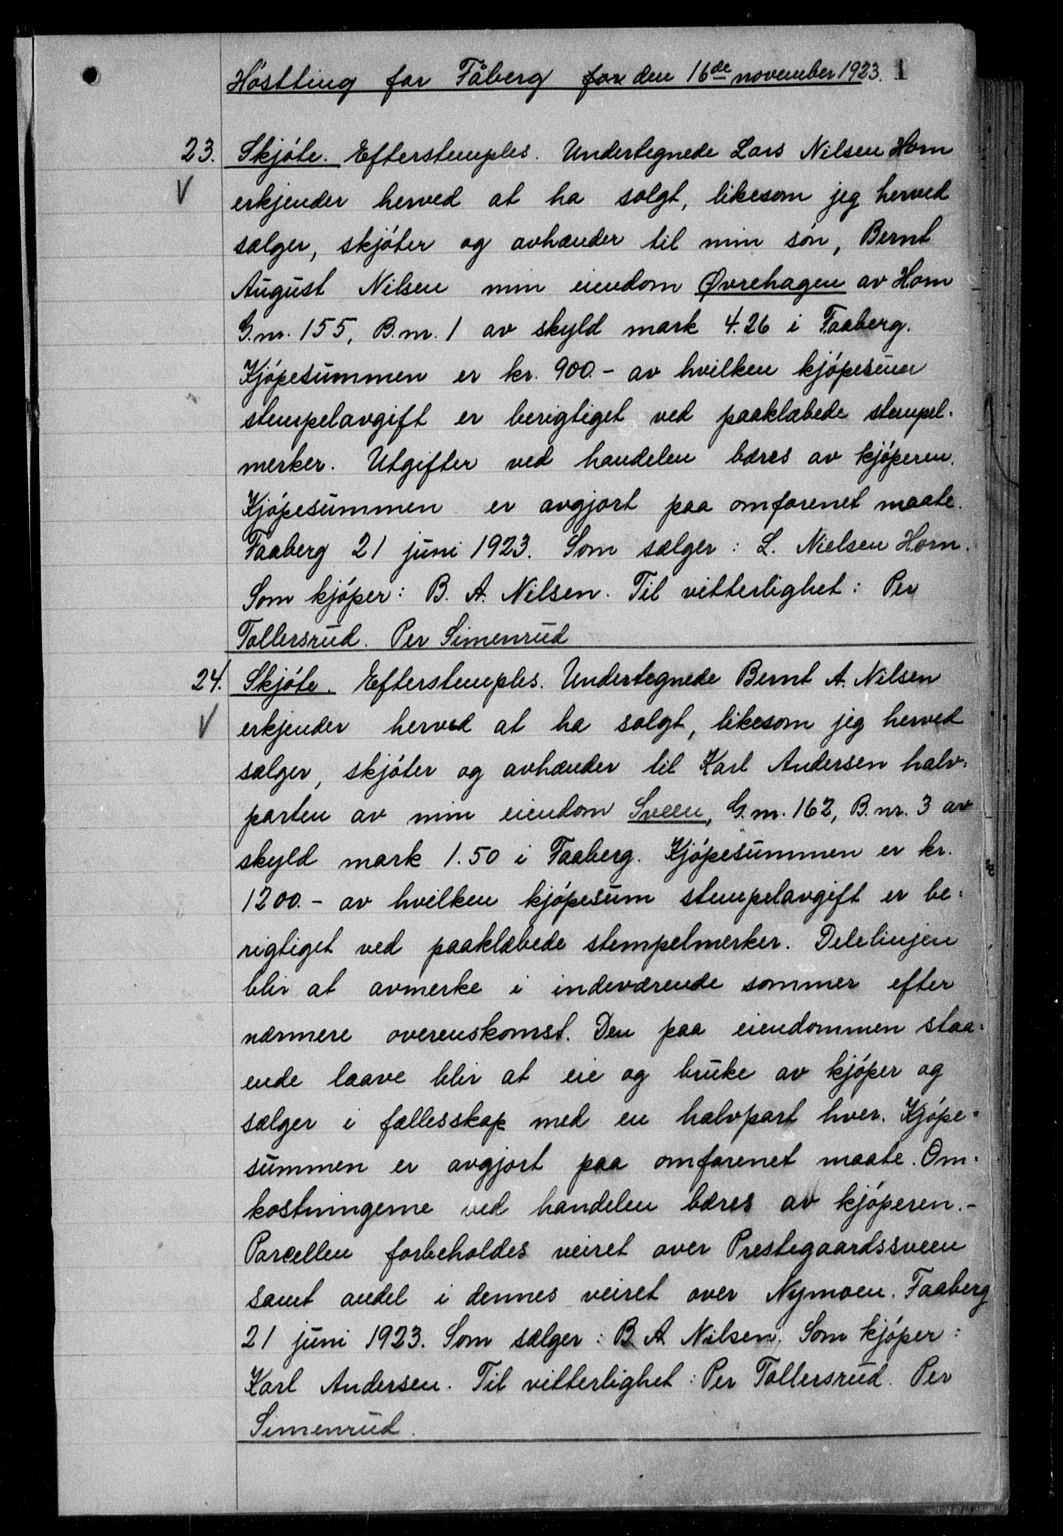 Høstting for Fåberg for den 16de november 1923. 1
23. Skjøte. Efterstemples. Undertegnede Lars Nilsen Horn
V erkjender herved at ha solgt, likesom jeg herved
sælger, skjøter og avhænder til min søn, Bernt
August Nilsen min eiendom Øvrehagen av Horn
G.nr. 155, B.nr. 1 av skyld mark 4.26 i Faaberg.
Kjøpesummen er kr. 900.- av hvilken kjøpesum
stempelavgift er berigtiget ved paaklæbede stempel-
merker. Utgifter ved handelen bæres av kjøperen.
Kjøpesummen er avgjort paa omforenet maate.
Faaberg 21 juni 1923. Som sælger: L. Nielsen Horn.
Som kjøper: B. A. Nilsen. Til vitterlighet: Per
Tollersrud. Per Simenrud
24. Skjøte. Efterstemples. Undertegnede Bernt A. Nilsen
V erkjender herved at ha solgt, likesom jeg herved
sælger, skjøter og avhænder til Karl Andersen halv-
parten av min eiendom Sveen, G.nr. 162, B.nr. 3 av
skyld mark 1.50 i Faaberg. Kjøpesummen er kr.
1200.- av hvilken kjøpesum stempelavgift er be-
rigtiget ved paaklæbede stempelmerker. Delelinjen
blir at avmerke i indeværende sommer efter
nærmere overenskomst. Den paa eiendommen staa-
ende laave blir at eie og bruke av kjøper og
sælger i fællesskap med en halvpart hver. Kjøpe-
summen er avgjort paa omforenet maate. Om-
kostningerne ved handelen bæres av kjøperen.-
Parcellen forbeholdes veiret over Prestegaardssveen
samt andel i dennes veiret over Nymoen. Faaberg
21 juni 1923. Som sælger: B. A. Nilsen. Som kjøper:
Karl Andersen. Til vitterlighet: Per Tollersrud. Per
Simenrud.